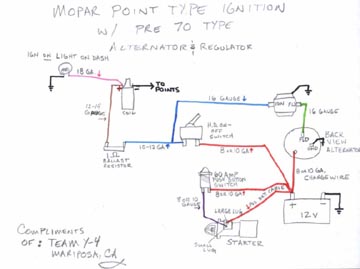 MOPAR POINT TYPE IGNITION
W/ PRE 70 TYPE
ALTERNATOR & REGULATOR
IGN ON LIGHT ON DASH
18 GA.
TO
POINTS
COIL
12-16
GAUGE
16 GAUGE
IGN
FLD
16 GAUGE
H.D. ON-
OFF
SWITCH
10-12 GA.
BALLAST
RESISTOR
8 OR 10 GA.
FLD
BACK
VIEW
ALTERNATOR
8 OR 10 GA.
CHARGE WIRE
60 AMP
PUSH BUTTON
SWITCH
8 OR 10 GA.
8 OR 12
GAUGE
LARGE LUG
12V
SMALL
LUG
STARTER
COMPLIMENTS
OF: TEAM Y-4
MARIPOSA, CA